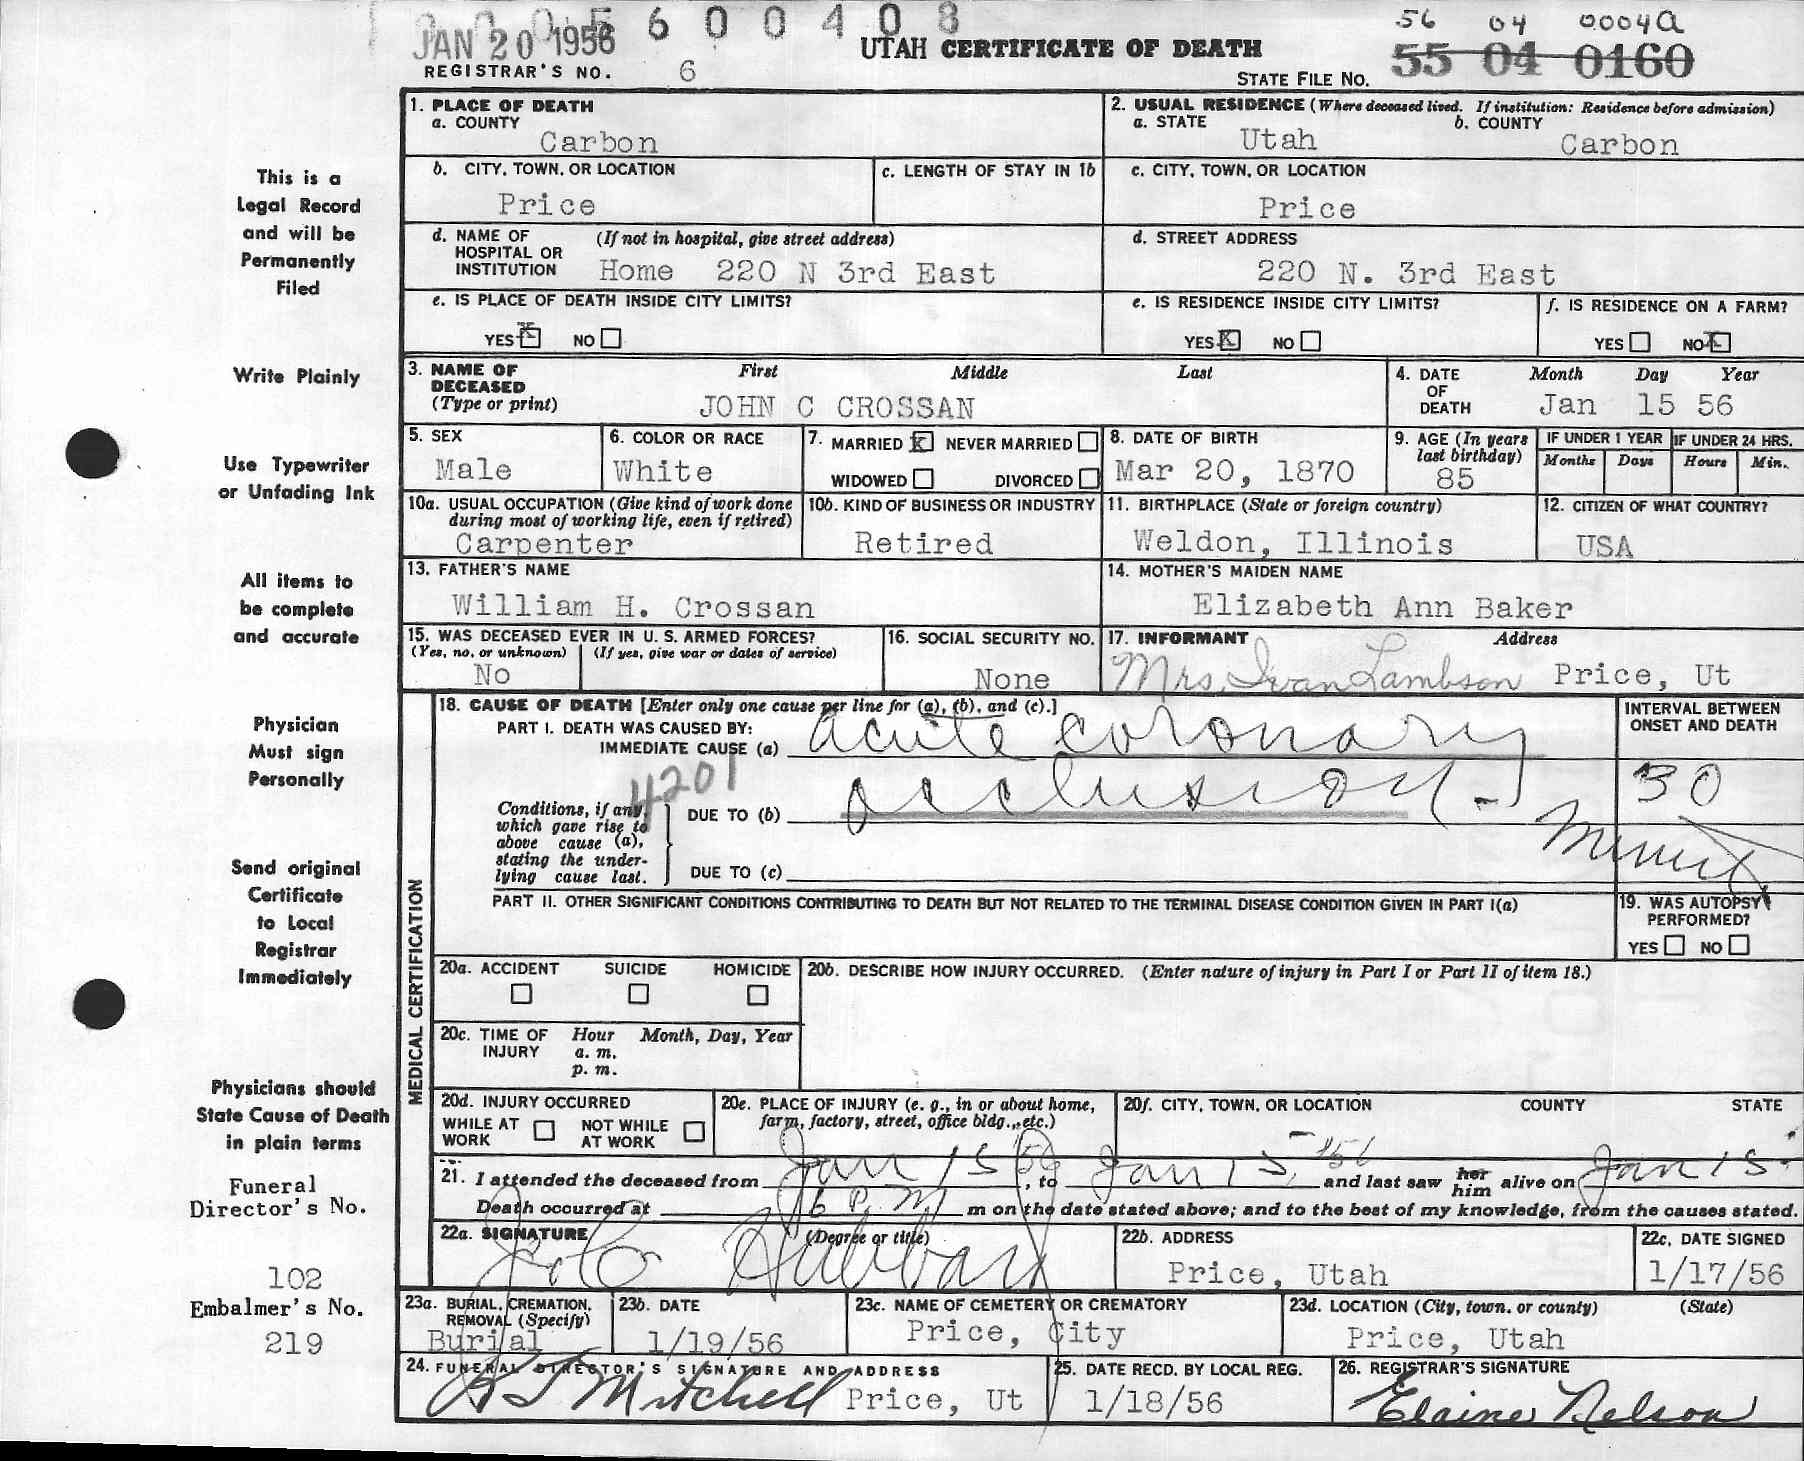 0 0 0 5 6 0 0 4 0 8
JAN 20 1956
56 04 0004a
UTAH CERTIFICATE OF DEATH
55 04 0160
REGISTRAR'S NO. 6
STATE FILE NO.
1. PLACE OF DEATH
a. COUNTY
Carbon
2. USUAL RESIDENCE (Where deceased lived. If institution: Residence before admission)
a. STATE Utah
b. COUNTY Carbon
b. CITY, TOWN, OR LOCATION
Price
c. LENGTH OF STAY IN 1b
c. CITY, TOWN, OR LOCATION
Price
d. NAME OF HOSPITAL OR INSTITUTION (If not in hospital, give street address)
Home 220 N 3rd East
d. STREET ADDRESS
220 N. 3rd East
e. IS PLACE OF DEATH INSIDE CITY LIMITS?
YES X NO
e. IS RESIDENCE INSIDE CITY LIMITS?
YES X NO
f. IS RESIDENCE ON A FARM?
YES NO X
3. NAME OF DECEASED (Type or print)
First Middle Last
JOHN C CROSSAN
4. DATE OF DEATH
Month Day Year
Jan 15 56
5. SEX
Male
6. COLOR OR RACE
White
7. MARRIED X NEVER MARRIED
WIDOWED DIVORCED
8. DATE OF BIRTH
Mar 20, 1870
9. AGE (In years last birthday)
85
IF UNDER 1 YEAR
Months Days
IF UNDER 24 HRS.
Hours Min.
10a. USUAL OCCUPATION (Give kind of work done during most of working life, even if retired)
Carpenter
10b. KIND OF BUSINESS OR INDUSTRY
Retired
11. BIRTHPLACE (State or foreign country)
Weldon, Illinois
12. CITIZEN OF WHAT COUNTRY?
USA
13. FATHER'S NAME
William H. Crossan
14. MOTHER'S MAIDEN NAME
Elizabeth Ann Baker
15. WAS DECEASED EVER IN U. S. ARMED FORCES?
(Yes, no, or unknown) (If yes, give war or dates of service)
No
16. SOCIAL SECURITY NO.
None
17. INFORMANT Address
Mrs. Ivan Lambson Price, Ut
MEDICAL CERTIFICATION
18. CAUSE OF DEATH [Enter only one cause per line for (a), (b), and (c).]
PART I. DEATH WAS CAUSED BY:
IMMEDIATE CAUSE (a) acute coronary
4201
Conditions, if any, which gave rise to above cause (a), stating the underlying cause last.
DUE TO (b) occlusion.
DUE TO (c)
INTERVAL BETWEEN ONSET AND DEATH
30
PART II. OTHER SIGNIFICANT CONDITIONS CONTRIBUTING TO DEATH BUT NOT RELATED TO THE TERMINAL DISEASE CONDITION GIVEN IN PART I(a)
19. WAS AUTOPSY PERFORMED?
YES NO
20a. ACCIDENT SUICIDE HOMICIDE
20b. DESCRIBE HOW INJURY OCCURRED. (Enter nature of injury in Part I or Part II of item 18.)
20c. TIME OF INJURY Hour Month, Day, Year
a. m.
p. m.
20d. INJURY OCCURRED
WHILE AT WORK NOT WHILE AT WORK
20e. PLACE OF INJURY (e. g., in or about home, farm, factory, street, office bldg., etc.)
20f. CITY, TOWN, OR LOCATION COUNTY STATE
21. I attended the deceased from Jan 15 '56, to Jan 15, '56 and last saw her him alive on Jan 15
Death occurred at 6 P. M. m on the date stated above; and to the best of my knowledge, from the causes stated.
22a. SIGNATURE (Degree or title)
Hubbard
22b. ADDRESS
Price, Utah
22c. DATE SIGNED
1/17/56
23a. BURIAL, CREMATION, REMOVAL (Specify)
Burial
23b. DATE
1/19/56
23c. NAME OF CEMETERY OR CREMATORY
Price, City
23d. LOCATION (City, town, or county) (State)
Price, Utah
24. FUNERAL DIRECTOR'S SIGNATURE AND ADDRESS
Mitchell Price, Ut
25. DATE RECD. BY LOCAL REG.
1/18/56
26. REGISTRAR'S SIGNATURE
Elaine Nelson
This is a
Legal Record
and will be
Permanently
Filed
Write Plainly
Use Typewriter
or Unfading Ink
All items to
be complete
and accurate
Physician
Must sign
Personally
Send original
Certificate
to Local
Registrar
Immediately
Physicians should
State Cause of Death
in plain terms
Funeral
Director's No.
102
Embalmer's No.
219